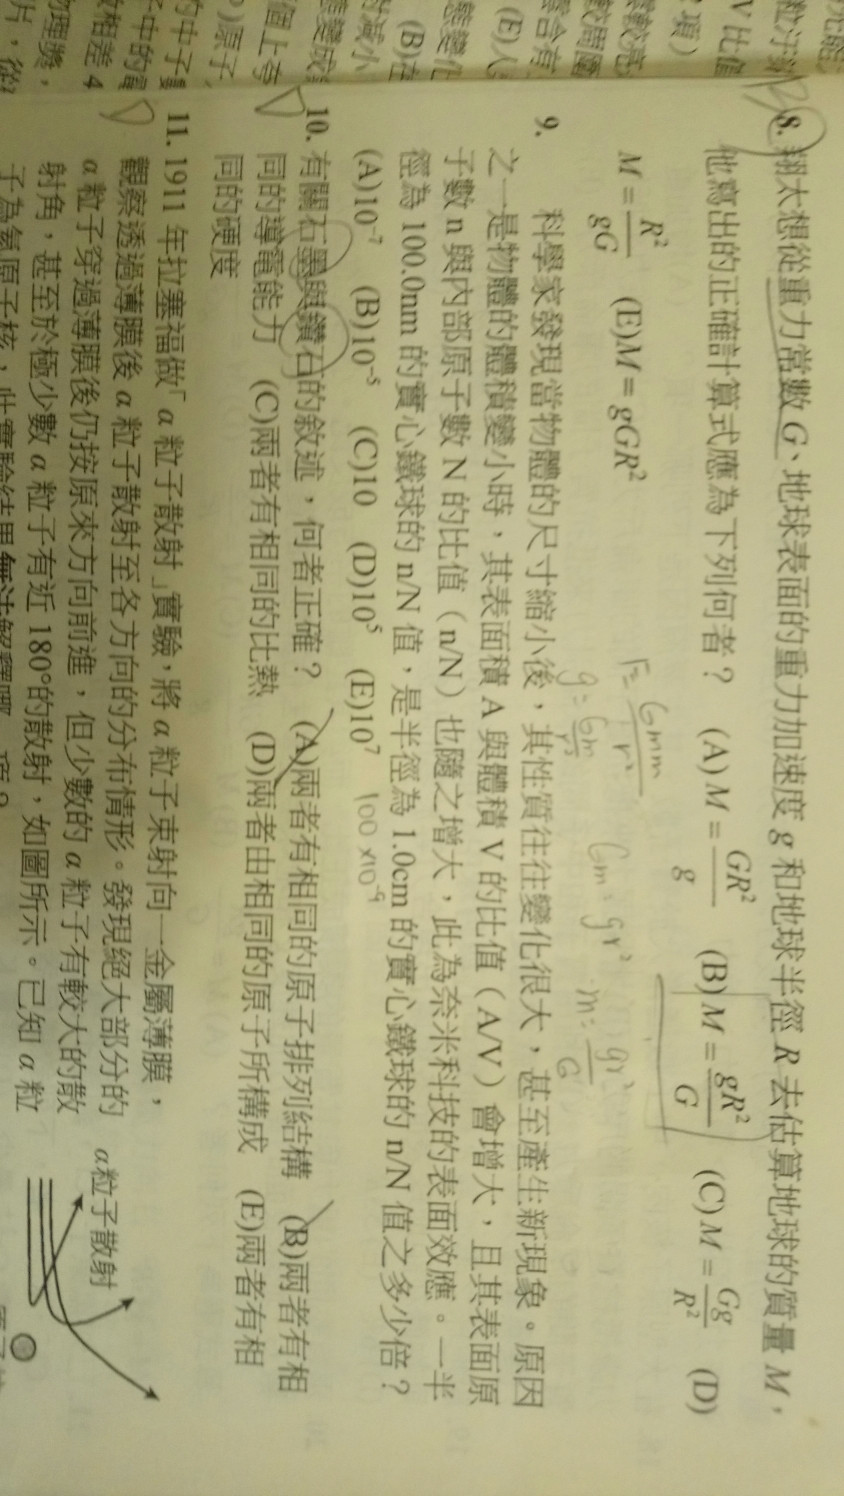 8. 翔太想從重力常數 G、地球表面的重力加速度 g 和地球半徑 R 去估算地球的質量 M，
他寫出的正確計算式應為下列何者？ (A) M = GR²/g (B) M = gR²/G (C) M = Gg/R² (D)
M = R²/gG (E) M = gGR²
F = Gmm/r²
g = Gm/r²
Gm = gr²
m = gr²/G
9. 科學家發現當物體的尺寸縮小後，其性質往往變化很大，甚至產生新現象。原因
之一是物體的體積變小時，其表面積 A 與體積 V 的比值（A/V）會增大，且其表面原
子數 n 與內部原子數 N 的比值（n/N）也隨之增大，此為奈米科技的表面效應。一半
徑為 100.0nm 的實心鐵球的 n/N 值，是半徑為 1.0cm 的實心鐵球的 n/N 值之多少倍？
(A)10⁻⁷ (B)10⁻⁵ (C)10 (D)10⁵ (E)10⁷
100 ×10⁻⁹
10. 有關石墨與鑽石的敘述，何者正確？ (A)兩者有相同的原子排列結構 (B)兩者有相
同的導電能力 (C)兩者有相同的比熱 (D)兩者由相同的原子所構成 (E)兩者有相
同的硬度
11. 1911 年拉塞福做「α 粒子散射」實驗，將 α 粒子束射向一金屬薄膜，
觀察透過薄膜後 α 粒子散射至各方向的分布情形。發現絕大部分的
α 粒子穿過薄膜後仍按原來方向前進，但少數的 α 粒子有較大的散
射角，甚至於極少數 α 粒子有近 180°的散射，如圖所示。已知 α 粒
子為氦原子核，此實驗結果無法解釋哪一項？
α粒子散射